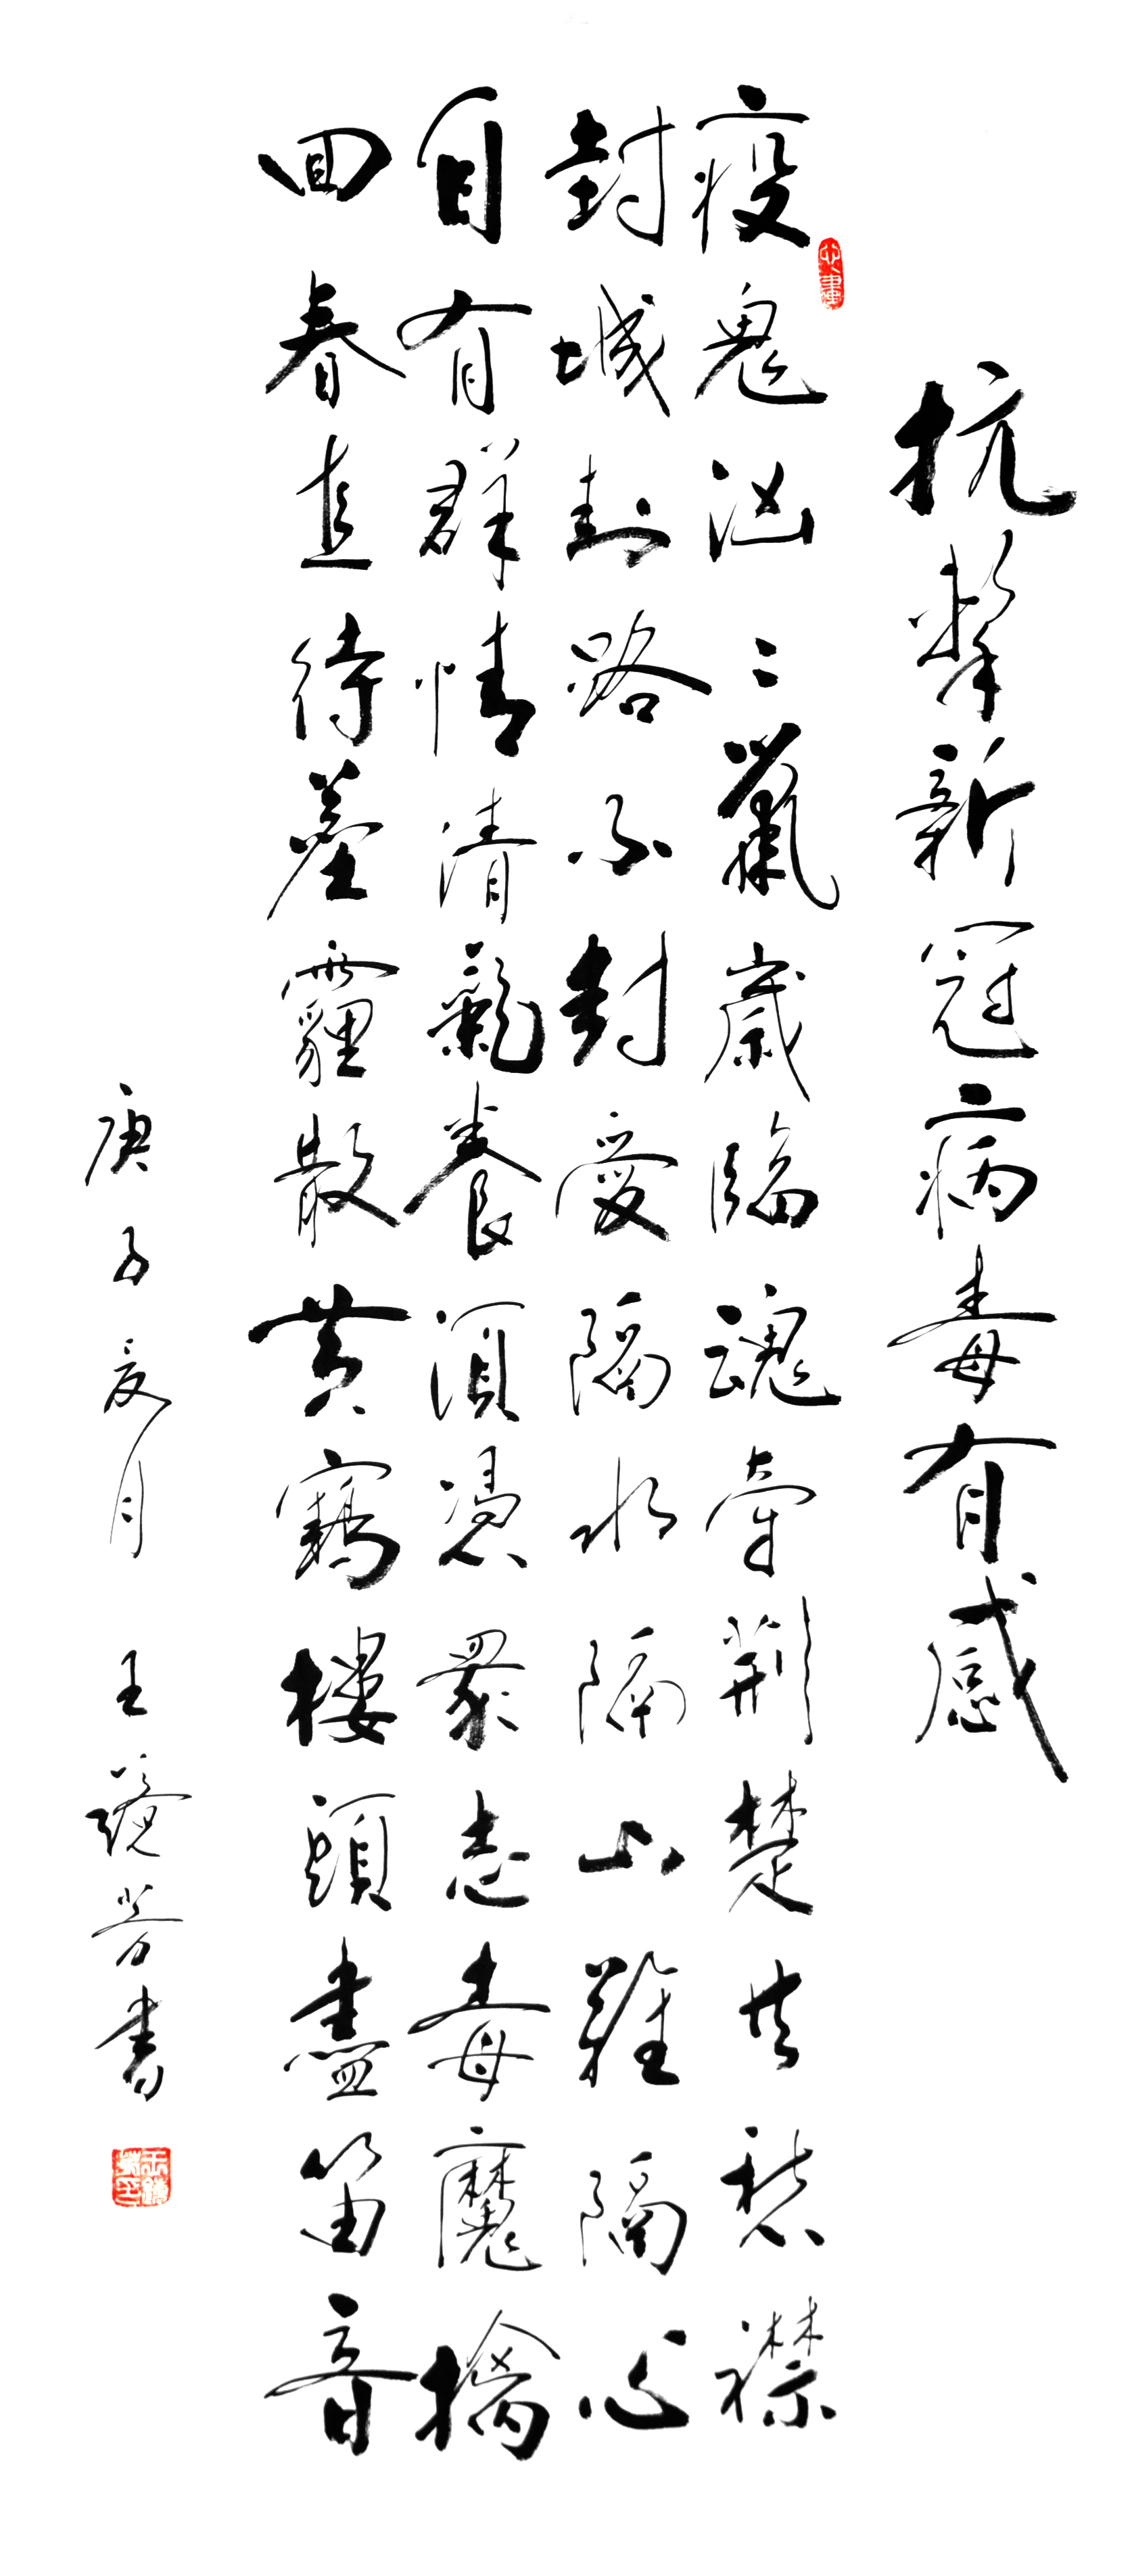 抗擊新冠病毒有感
疫鬼汹〻鼠歲臨魂牽荊楚共愁襟
封城封路不封愛隔水隔山難隔心
自有群情清氣養須憑眾志毒魔擒
回春直待塵霾散黃鶴樓頭盡笛音
庚子夏月 王芳書
心畫